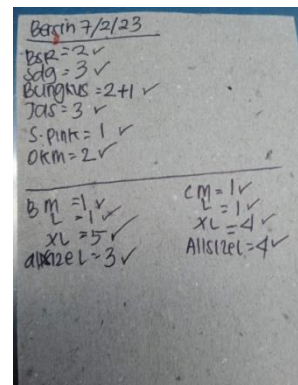 Bersin 7/2/23
BSR = 2 ✓
Sdg = 3 ✓
Bungkus = 2+1 ✓
Jas = 3 ✓
S. Pink = 1 ✓
OKM = 2 ✓
B M = 1 ✓
L = 1 ✓
XL = 5 ✓
allsize L = 3 ✓
CM = 1 ✓
L = 1 ✓
XL = 4 ✓
Allsize L = 4 ✓